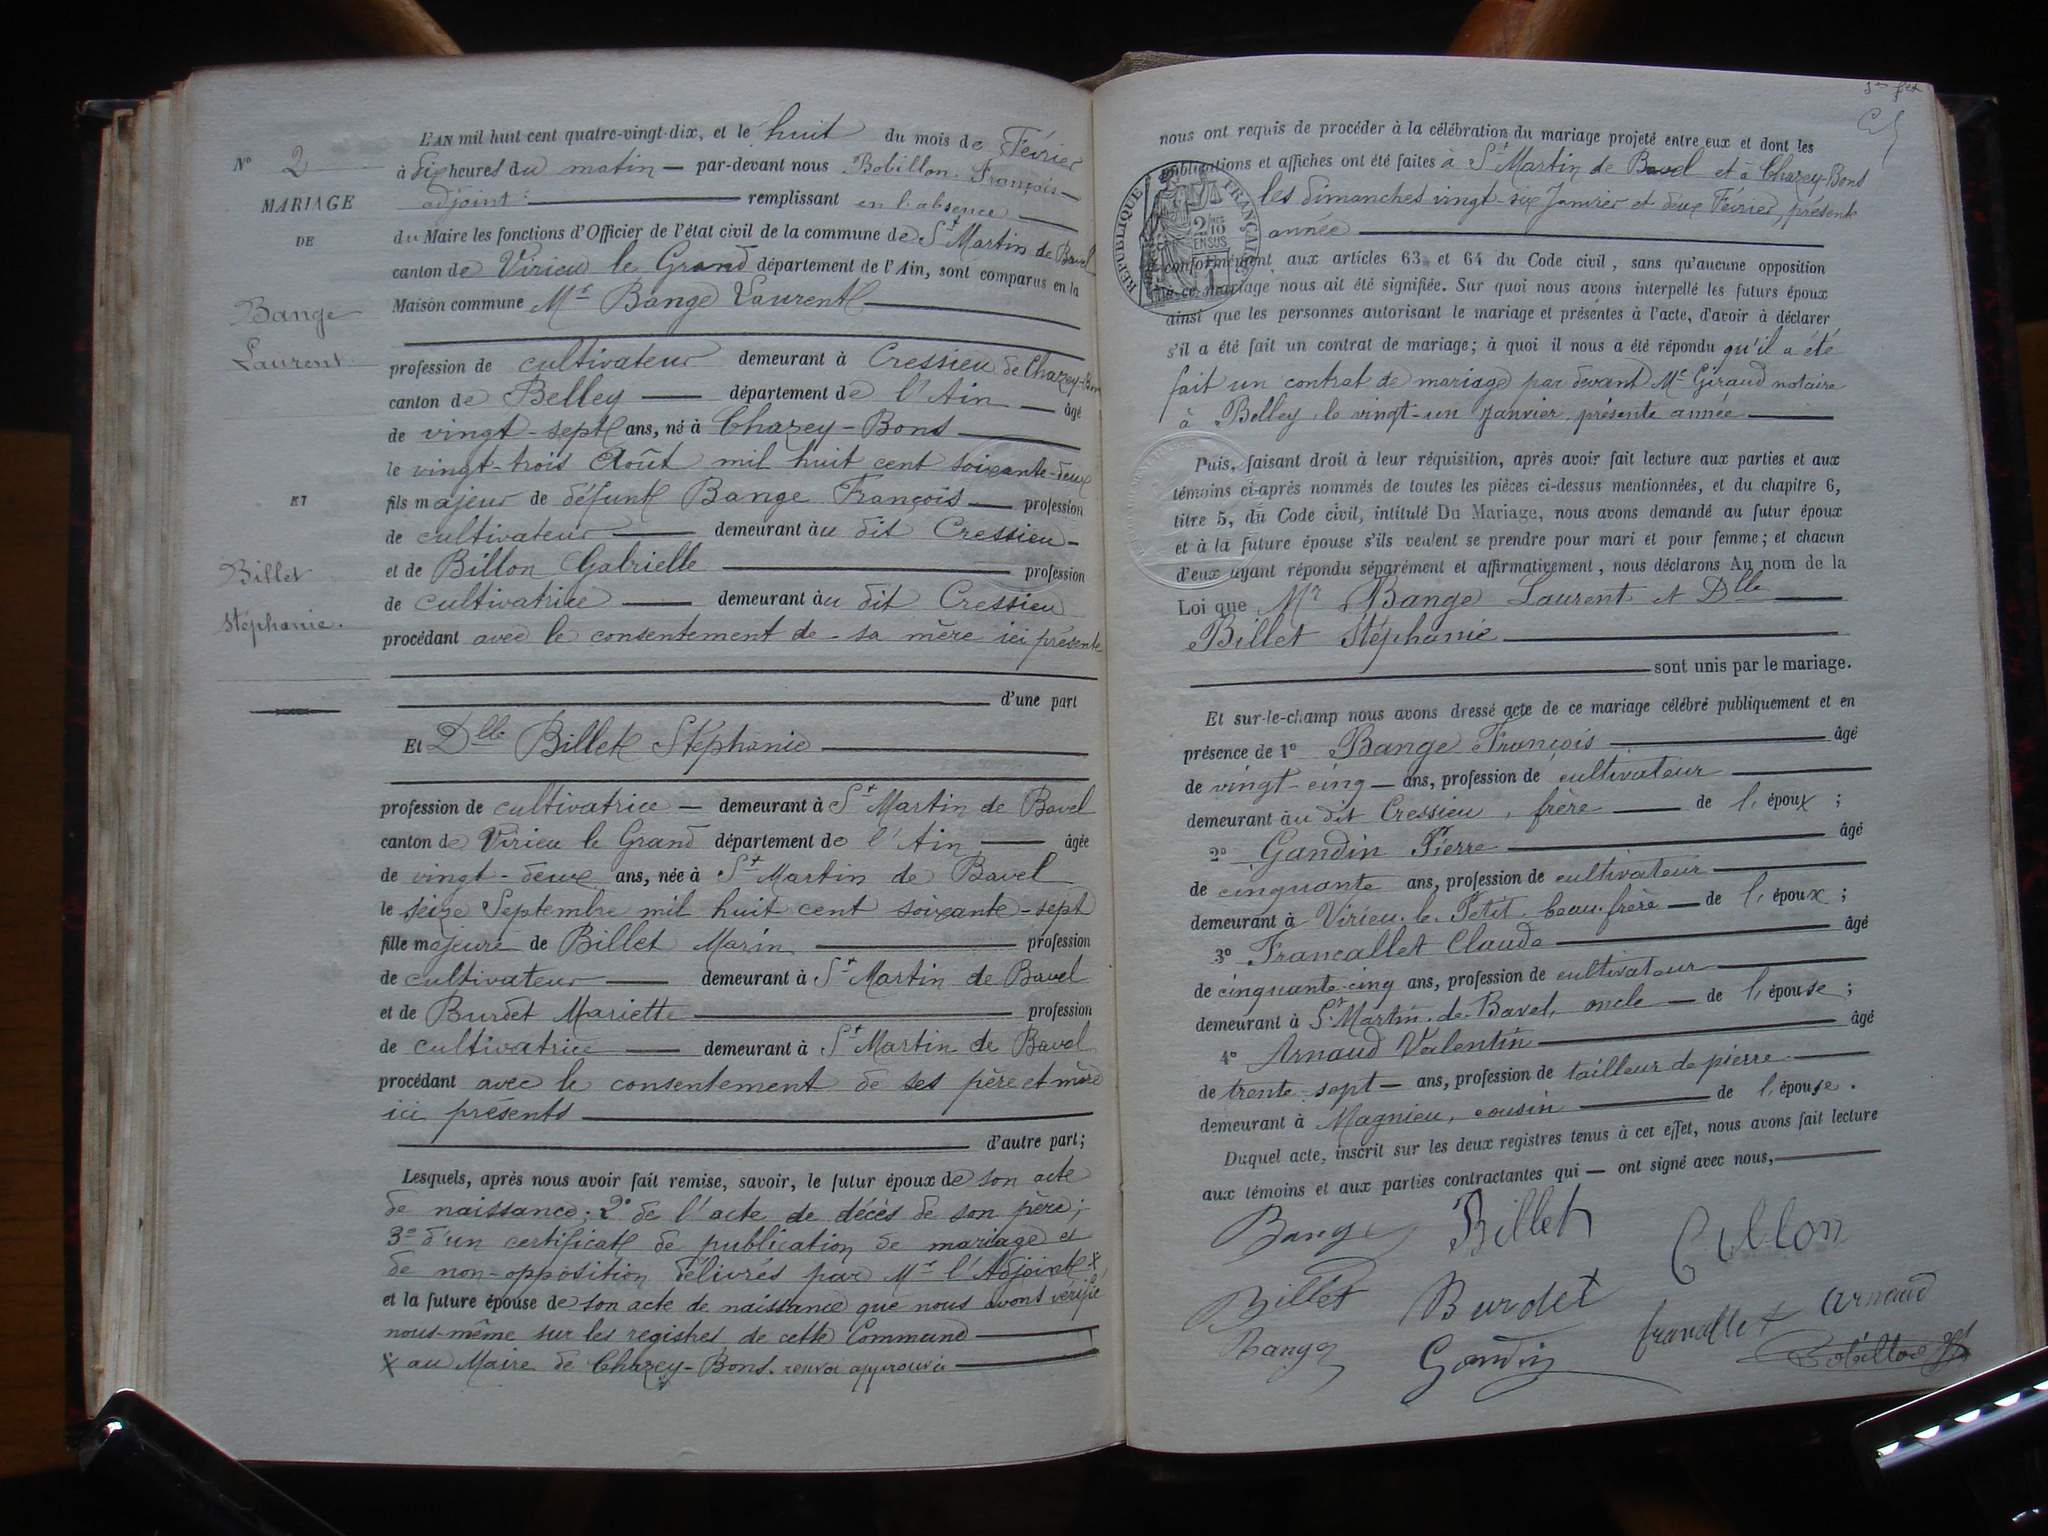 L'AN mil huit cent quatre-vingt-dix, et le huit du mois de Février
N° 2
à dix heures du matin — par-devant nous Bobillon François
MARIAGE
adjoint: remplissant en l'absence
DE
du Maire les fonctions d'Officier de l'état civil de la commune de St Martin de Bavel
canton de Virieu le Grand département de l'Ain, sont comparus en la
Maison commune Mr Bange Laurent
Bange
Laurent
profession de cultivateur demeurant à Cressieu de Chazey-Bons
canton de Belley — département de l'Ain — âgé
de vingt-sept ans, né à Chazey-Bons
le vingt-trois Août mil huit cent soixante-deux
ET
fils majeur de défunt Bange François — profession
de cultivateur — demeurant àu dit Cressieu -
et de Billon Gabrielle profession
Billet
de cultivatrice — demeurant àu dit Cressieu
Stéphanie.
procédant avec le consentement de sa mère ici présente
d'une part
Et Dlle Billet Stéphanie
profession de cultivatrice — demeurant à St Martin de Bavel
canton de Virieu le Grand département de l'Ain — âgée
de vingt-deux ans, née à St Martin de Bavel
le seize Septembre mil huit cent soixante-sept
fille majeure de Billet Marin profession
de cultivateur — demeurant à St Martin de Bavel
et de Burdet Mariette profession
de cultivatrice — demeurant à St Martin de Bavel
procédant avec le consentement de ses père et mère
ici présents
d'autre part;
Lesquels, après nous avoir fait remise, savoir, le futur époux de son acte
de naissance; 2° de l'acte de décès de son père;
3° d'un certificat de publication de mariage et
de non-opposition délivrés par Mr l'Adjoint x
et la future épouse de son acte de naissance que nous avons vérifié
nous-même sur les registres de cette Commune
x au Maire de Chazey-Bons. renvoi approuvé
nous ont requis de procéder à la célébration du mariage projeté entre eux et dont les
publications et affiches ont été faites à St Martin de Bavel et à Chazey-Bons
les dimanches vingt-six Janvier et deux Février, présente
année
RÉPUBLIQUE FRANÇAISE
2/10 EN SUS
conformément aux articles 63 et 64 du Code civil, sans qu'aucune opposition
à ce mariage nous ait été signifiée. Sur quoi nous avons interpellé les futurs époux
ainsi que les personnes autorisant le mariage et présentes à l'acte, d'avoir à déclarer
s'il a été fait un contrat de mariage; à quoi il nous a été répondu qu'il a été
fait un contrat de mariage par devant Me Giraud notaire
à Belley, le vingt-un Janvier, présente année
Puis, faisant droit à leur réquisition, après avoir fait lecture aux parties et aux
témoins ci-après nommés de toutes les pièces ci-dessus mentionnées, et du chapitre 6,
titre 5, du Code civil, intitulé Du Mariage, nous avons demandé au futur époux
et à la future épouse s'ils veulent se prendre pour mari et pour femme; et chacun
d'eux ayant répondu séparément et affirmativement, nous déclarons Au nom de la
Loi que Mr Bange Laurent et Dlle
Billet Stéphanie
sont unis par le mariage.
Et sur-le-champ nous avons dressé acte de ce mariage célébré publiquement et en
présence de 1° Bange François âgé
de vingt-cinq — ans, profession de cultivateur
demeurant àu dit Cressieu, frère — de l'époux;
2° Gandin Pierre âgé
de cinquante ans, profession de cultivateur
demeurant à Virieu-le-Petit, beau-frère — de l'époux;
3° Francallet Claude âgé
de cinquante-cinq ans, profession de cultivateur
demeurant à St Martin-de-Bavel, oncle — de l'épouse;
4° Arnaud Valentin âgé
de trente-sept — ans, profession de tailleur de pierre
demeurant à Magnieu, cousin de l'épouse.
Duquel acte, inscrit sur les deux registres tenus à cet effet, nous avons fait lecture
aux témoins et aux parties contractantes qui — ont signé avec nous,
Bange Billet Billon
Billet Burdet
Bange Gandin francallet Arnaud
Bobillon